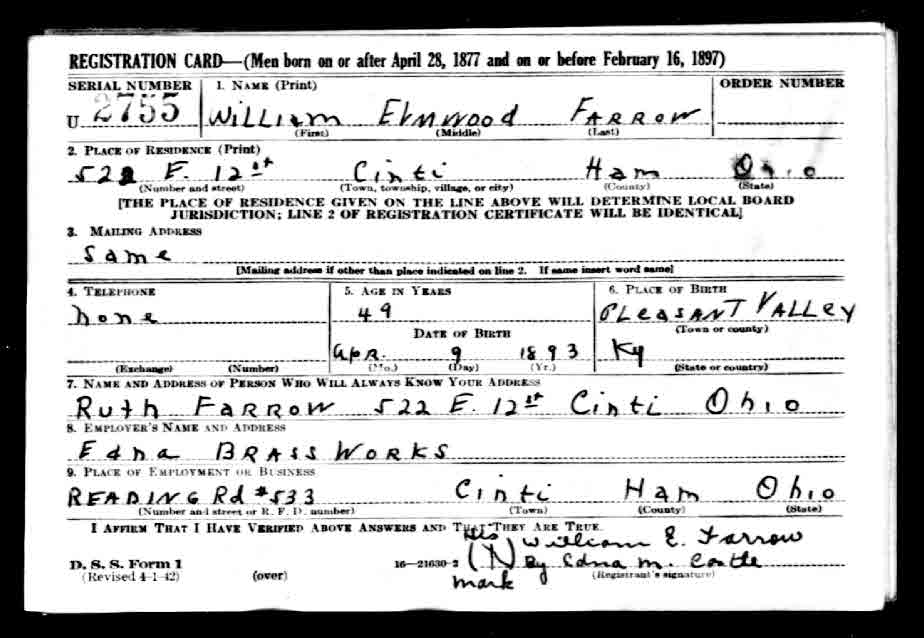 REGISTRATION CARD—(Men born on or after April 28, 1877 and on or before February 16, 1897)
SERIAL NUMBER 1. NAME (Print) ORDER NUMBER
U 2755 WILLIAM ELMWOOD FARROW
(First) (Middle) (Last)
2. PLACE OF RESIDENCE (Print)
522 E. 12st Cinti Ham Ohio
(Number and street) (Town, township, village, or city) (County) (State)
[THE PLACE OF RESIDENCE GIVEN ON THE LINE ABOVE WILL DETERMINE LOCAL BOARD
JURISDICTION; LINE 2 OF REGISTRATION CERTIFICATE WILL BE IDENTICAL]
3. MAILING ADDRESS
Same
[Mailing address if other than place indicated on line 2. If same insert word same]
4. TELEPHONE 5. AGE IN YEARS 6. PLACE OF BIRTH
none 49 PLEASANT VALLEY
DATE OF BIRTH (Town or county)
Apr. 9 1893 Ky
(Exchange) (Number) (Mo.) (Day) (Yr.) (State or country)
7. NAME AND ADDRESS OF PERSON WHO WILL ALWAYS KNOW YOUR ADDRESS
RUTH FARROW 522 E. 12st Cinti Ohio
8. EMPLOYER'S NAME AND ADDRESS
Edna BRASS WORKS
9. PLACE OF EMPLOYMENT OR BUSINESS
READING Rd #533 Cinti Ham Ohio
(Number and street or R. F. D. number) (Town) (County) (State)
I AFFIRM THAT I HAVE VERIFIED ABOVE ANSWERS AND THAT THEY ARE TRUE.
His William E. Farrow
D. S. S. Form 1 16—21630-2 (X) By Edna M.
(Revised 4-1-42) (over) mark (Registrant's signature)